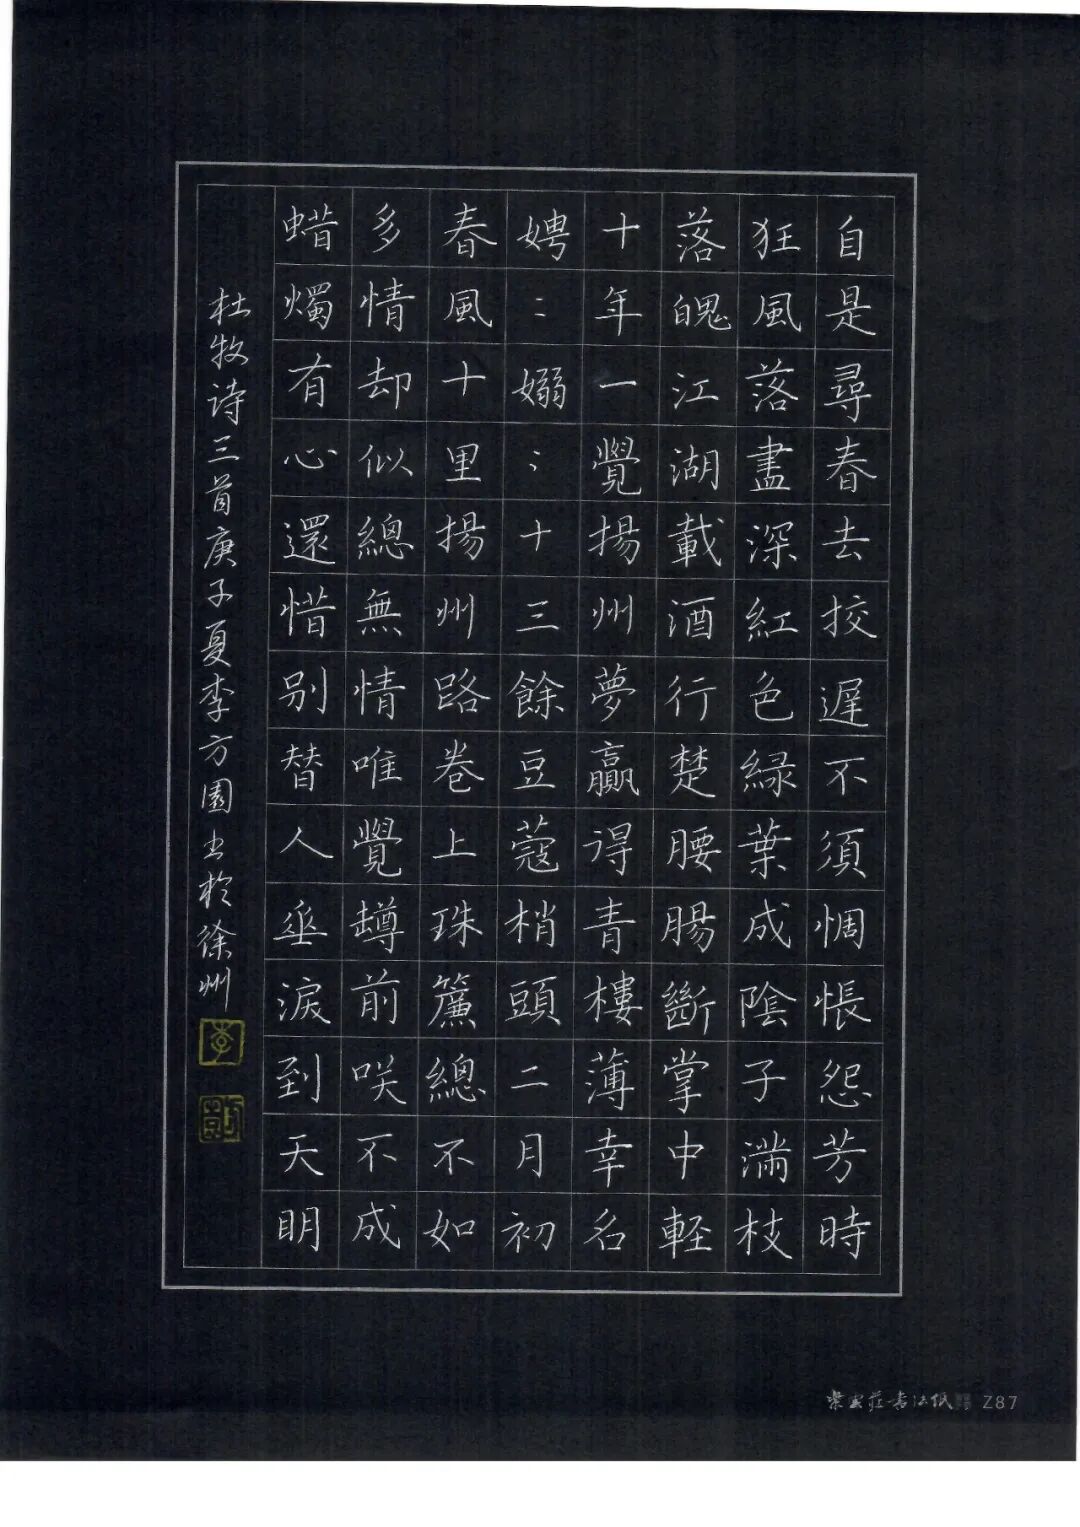 自是尋春去挍遲不須惆悵怨芳時
狂風落盡深紅色緑葉成陰子滿枝
落魄江湖載酒行楚腰腸斷掌中軽
十年一覺揚州夢贏得青樓薄幸名
娉：嫋：十三餘豆蔻梢頭二月初
春風十里揚州路卷上珠簾總不如
多情却似總無情唯覺罇前咲不成
蜡燭有心還惜别替人垂淚到天明
杜牧诗三首庚子夏李方園书於徐州
紫雲莊书法紙 Z87